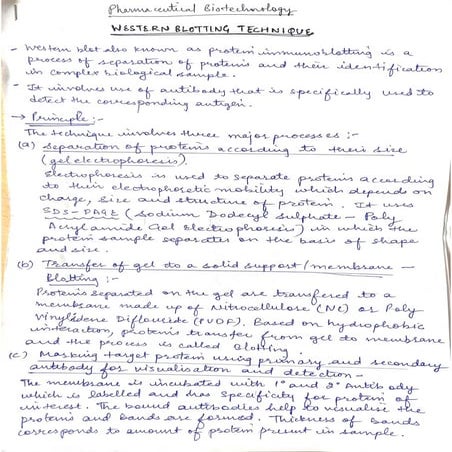 Pharmaceutical Biotechnology
WESTERN BLOTTING TECHNIQUE
- Western blot also known as protein immunoblotting is a
process of separation of proteins and their identification
in complex biological sample.
- It involves use of antibody that is specifically used to
detect the corresponding antigen.
→ Principle :-
The technique involves three major processes :-
(a) Separation of proteins according to their size
(gel electrophoresis)
Electrophoresis is used to separate proteins according
to their electrophoretic mobility which depends on
charge, size and structure of protein. It uses
SDS-PAGE (Sodium Dodecyl Sulphate - Poly
Acrylamide Gel Electrophoresis) in which the
protein sample separates on the basis of shape
and size.
(b) Transfer of gel to a solid support/membrane -
Blotting :-
Proteins separated on the gel are transfered to a
membrane made up of Nitrocellulose (NC) or Poly
Vinylidene Difluoride (PVDF). Based on hydrophobic
interaction, proteins transfer from gel to membrane
and the process is called Blotting.
(c) Marking target protein using primary and secondary
antibody for visualisation and detection -
The membrane is incubated with 1° and 2° Antibody
which is labelled and has specificity for protein of
interest. The bound antibodies help to visualise the
proteins and bands are formed. Thickness of bands
corresponds to amount of protein present in sample.